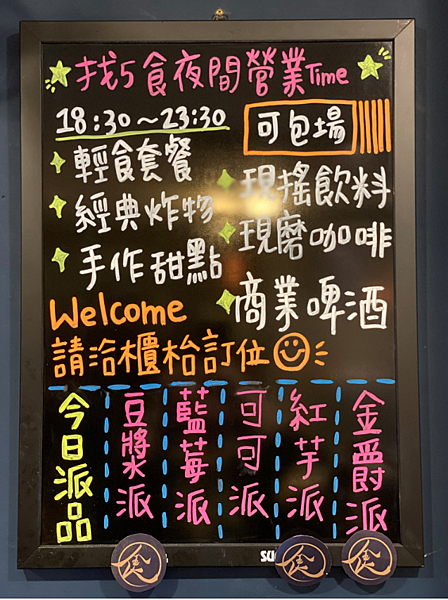 找5食夜間營業Time
18:30~23:30
可包場
輕食套餐
經典炸物
手作甜點
現搖飲料
現磨咖啡
商業啤酒
Welcome
請洽櫃枱訂位
今日派品
豆漿派
藍莓派
可可派
紅芋派
金爵派
SU
食
食
食